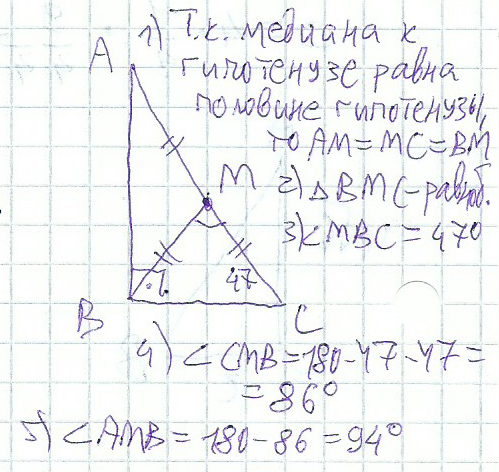 1) Т.к. медиана к
гипотенузе равна
половине гипотенузы,
то AM = MC = BM
2) △ BMC - равноб.
3) ∠MBC = 47°
A
M
47
B
C
4) ∠ CMB = 180-47-47 =
= 86°
5) ∠AMB = 180-86 = 94°